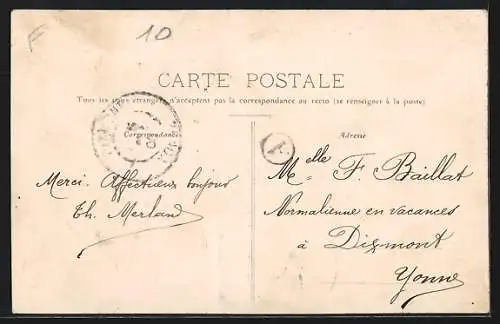 F
10
CARTE POSTALE
Tous les pays étrangers n'acceptent pas la correspondance au recto (se renseigner à la poste)
Correspondance
Adresse
Merci. Affectueux bonjour
Th. Merland
Melle F. Baillat
Normalienne en vacances
à Dixmont
Yonne